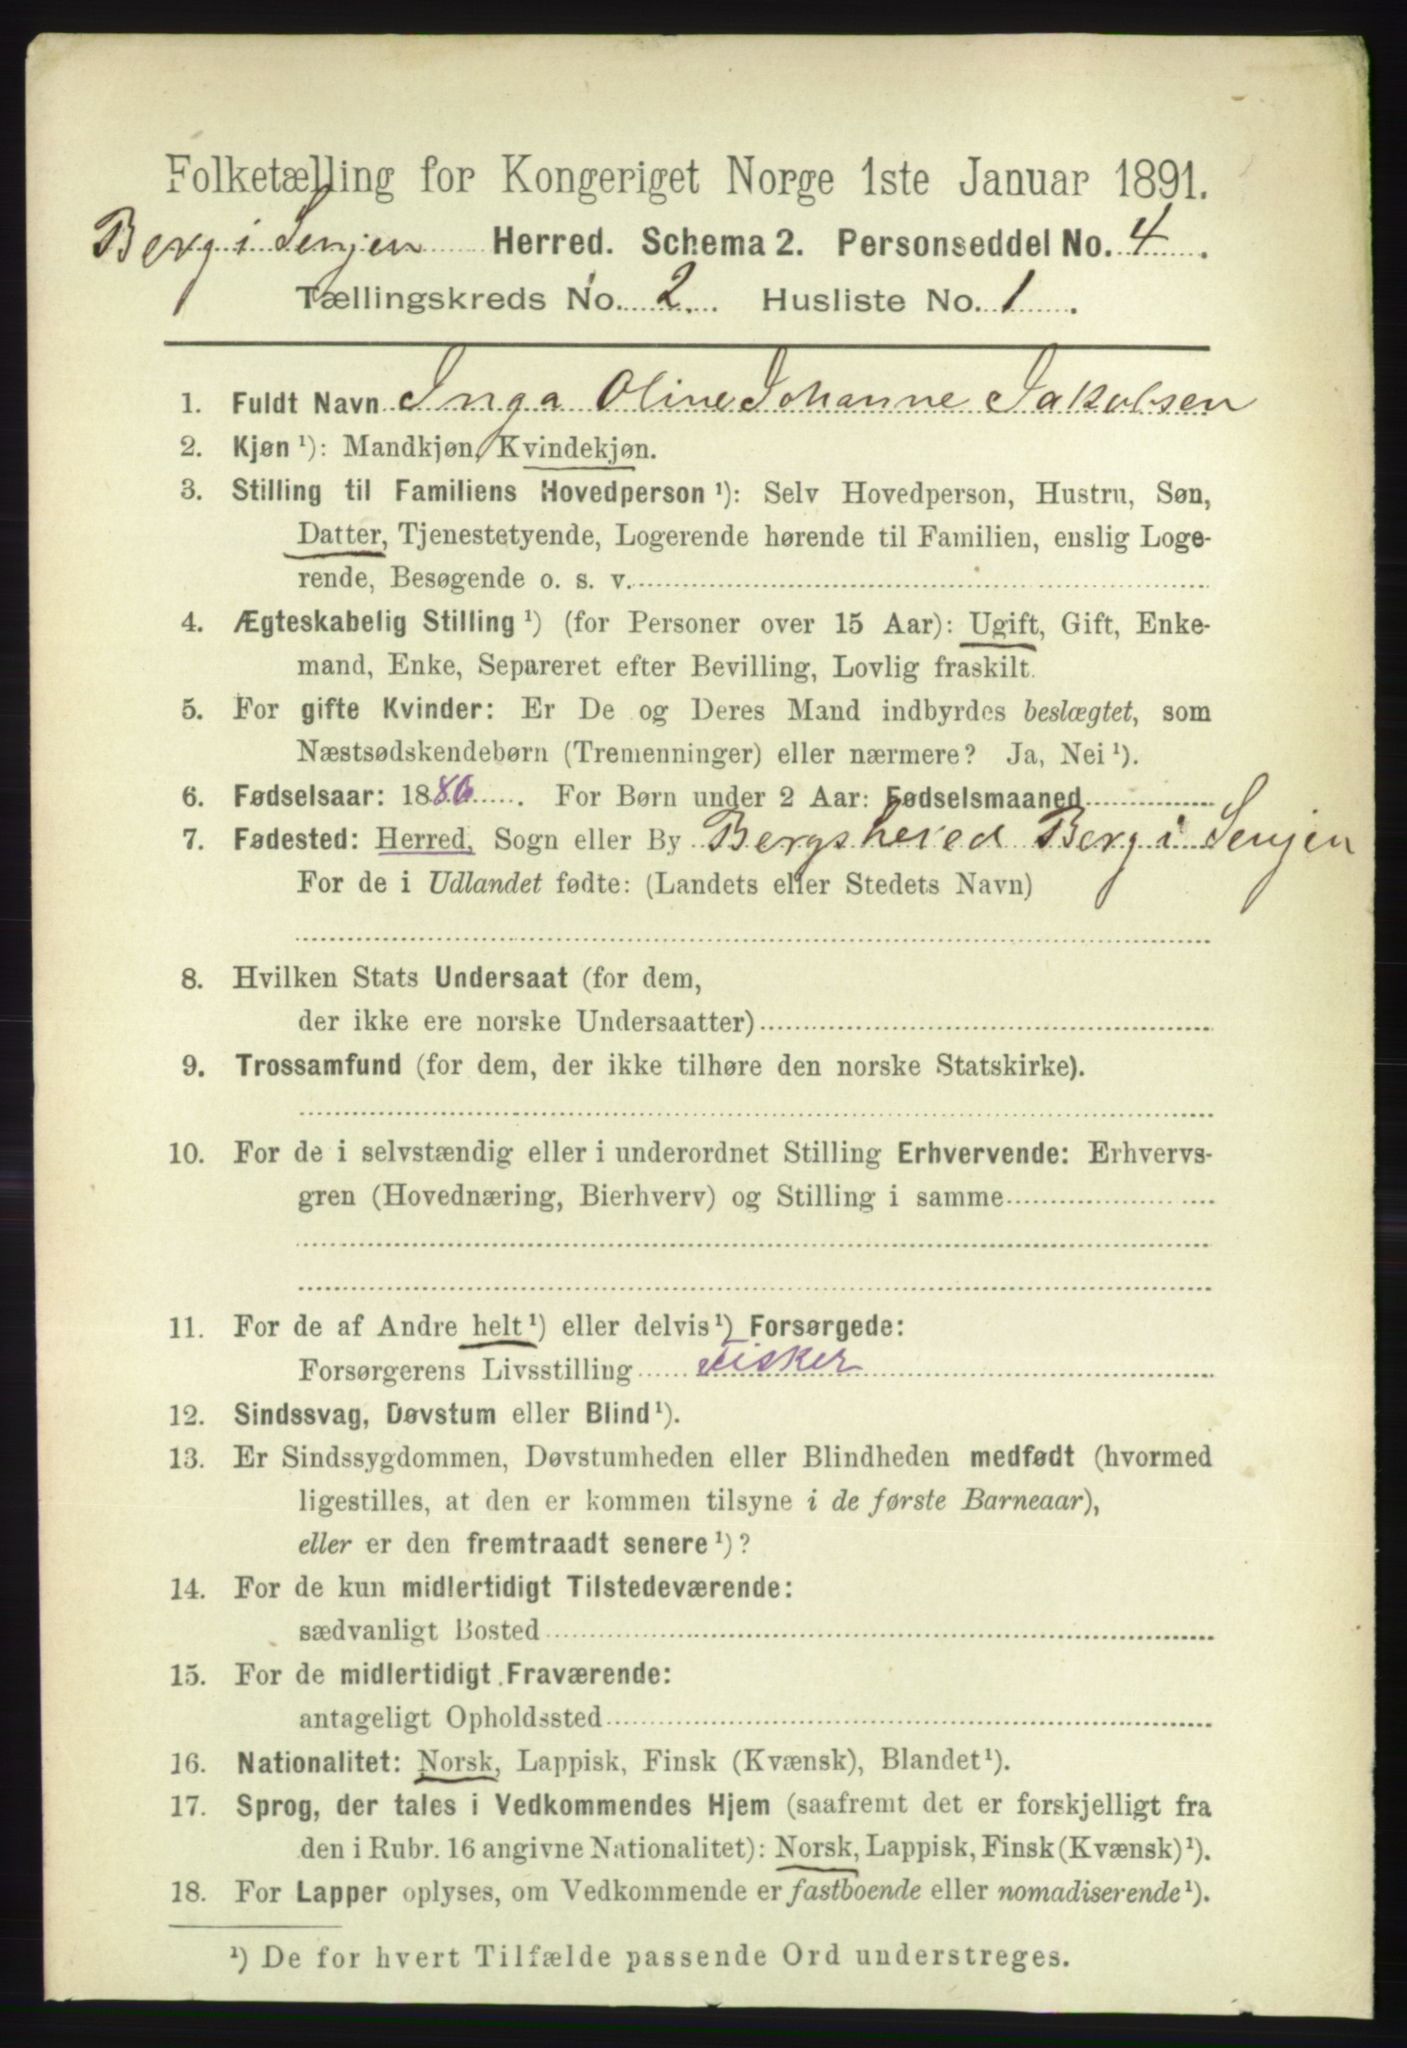 Folketælling for Kongeriget Norge 1ste Januar 1891.
Berg i Senjen Herred. Schema 2. Personseddel No. 4.
Tællingskreds No. 2. Husliste No. 1.
1. Fuldt Navn Inga Oline Johanne Jakobsen
2. Kjøn ¹): Mandkjøn, Kvindekjøn.
3. Stilling til Familiens Hovedperson ¹): Selv Hovedperson, Hustru, Søn,
Datter, Tjenestetyende, Logerende hørende til Familien, enslig Loge-
rende, Besøgende o. s. v.
4. Ægteskabelig Stilling ¹) (for Personer over 15 Aar): Ugift, Gift, Enke-
mand, Enke, Separeret efter Bevilling, Lovlig fraskilt.
5. For gifte Kvinder: Er De og Deres Mand indbyrdes beslægtet, som
Næstsødskendebørn (Tremenninger) eller nærmere? Ja, Nei ¹).
6. Fødselsaar: 1886. For Børn under 2 Aar: Fødselsmaaned
7. Fødested: Herred, Sogn eller By Bergsherred Berg i Senjen
For de i Udlandet fødte: (Landets eller Stedets Navn)
8. Hvilken Stats Undersaat (for dem,
der ikke ere norske Undersaatter)
9. Trossamfund (for dem, der ikke tilhøre den norske Statskirke).
10. For de i selvstændig eller i underordnet Stilling Erhvervende: Erhvervs-
gren (Hovednæring, Bierhverv) og Stilling i samme
11. For de af Andre helt ¹) eller delvis ¹) Forsørgede:
Forsørgerens Livsstilling Fisker
12. Sindssvag, Døvstum eller Blind ¹).
13. Er Sindssygdommen, Døvstumheden eller Blindheden medfødt (hvormed
ligestilles, at den er kommen tilsyne i de første Barneaar),
eller er den fremtraadt senere ¹)?
14. For de kun midlertidigt Tilstedeværende:
sædvanligt Bosted
15. For de midlertidigt Fraværende:
antageligt Opholdssted
16. Nationalitet: Norsk, Lappisk, Finsk (Kvænsk), Blandet ¹).
17. Sprog, der tales i Vedkommendes Hjem (saafremt det er forskjelligt fra
den i Rubr. 16 angivne Nationalitet): Norsk, Lappisk, Finsk (Kvænsk) ¹).
18. For Lapper oplyses, om Vedkommende er fastboende eller nomadiserende ¹).
¹) De for hvert Tilfælde passende Ord understreges.